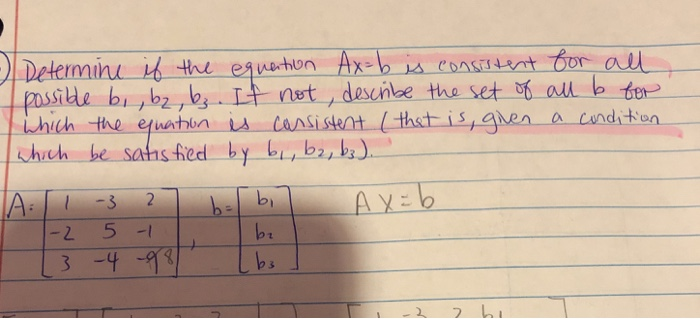 Determine if the equation Ax=b is consistent for all
possible b₁, b₂, b₃. If not, describe the set of all b for
which the equation is consistent (that is, given a condition
which be satisfied by b₁, b₂, b₃).
A= [ 1 -3 2 ] b= [ b₁ ] AX=b
[ -2 5 -1 ] , [ b₂ ]
[ 3 -4 -8 ] [ b₃ ]
1 -3 2 b₁